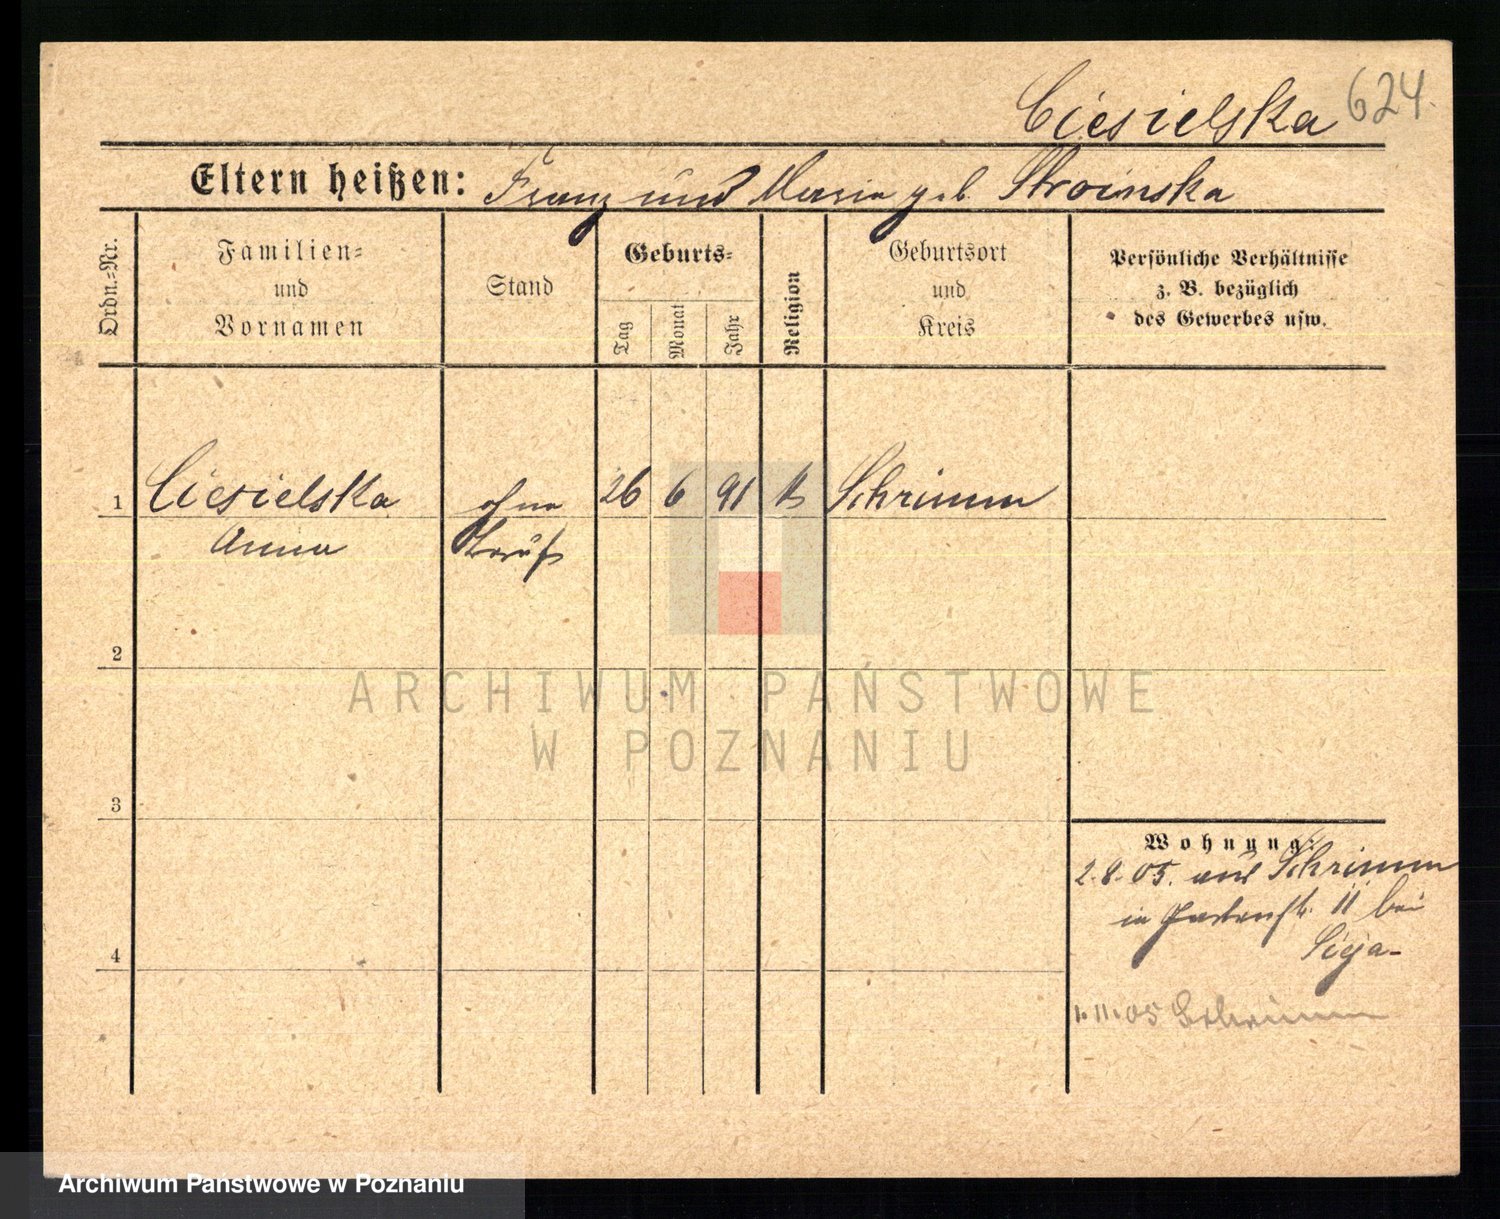 Ciesielska 624.
Eltern heißen: Franz und Maria geb. Stroinska
Ordn.-Nr.
Familien-
und
Vornamen
Stand
Geburts-
Tag
Monat
Jahr
Religion
Geburtsort
und
Kreis
Persönliche Verhältnisse
z. B. bezüglich
des Gewerbes usw.
1 Ciesielska ohne 26 6 91 k Schrimm
Anna Beruf
2
ARCHIWUM PAŃSTWOWE
W POZNANIU
3
Wohnung:
2.8.05. aus Schrimm
in Gartenstr. 11 bei
4
1.11.05 Schrimm
Archiwum Państwowe w Poznaniu